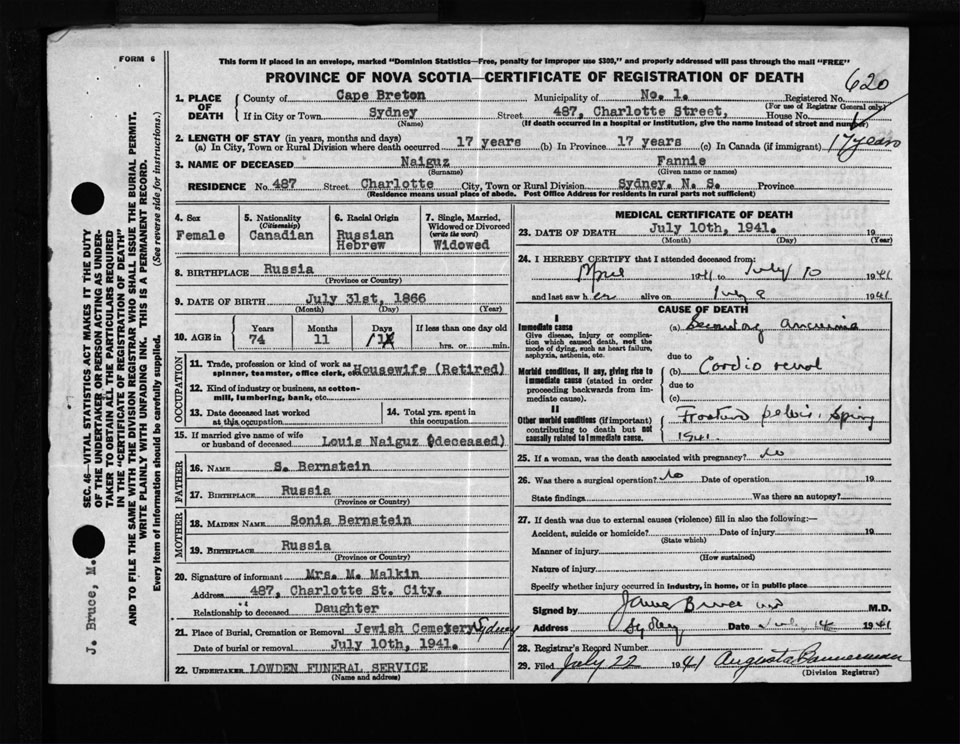 FORM 6
This form if placed in an envelope, marked "Dominion Statistics—Free, penalty for improper use $300," and properly addressed will pass through the mail "FREE"
PROVINCE OF NOVA SCOTIA—CERTIFICATE OF REGISTRATION OF DEATH
620
1. PLACE OF DEATH
County of Cape Breton Municipality of No. 1. Registered No.
(For use of Registrar General only)
If in City or Town Sydney Street 487, Charlotte Street, House No.
(Name) (If death occurred in a hospital or institution, give the name instead of street and number)
2. LENGTH OF STAY (in years, months and days)
(a) In City, Town or Rural Division where death occurred 17 years (b) In Province 17 years (c) In Canada (if immigrant) 17 years
3. NAME OF DECEASED Naiguz Fannie
(Surname) (Given name or names)
RESIDENCE No. 487 Street Charlotte City, Town or Rural Division Sydney. N. S. Province
(Residence means usual place of abode. Post Office Address for residents in rural parts not sufficient)
4. Sex
Female
5. Nationality
(Citizenship)
Canadian
6. Racial Origin
Russian
Hebrew
7. Single, Married, Widowed or Divorced
(write the word)
Widowed
8. BIRTHPLACE Russia
(Province or Country)
9. DATE OF BIRTH July 31st, 1866
(Month) (Day) (Year)
10. AGE in
Years Months Days If less than one day old
74 11 hrs. or min.
OCCUPATION
11. Trade, profession or kind of work as spinner, teamster, office clerk, etc. Housewife (Retired)
12. Kind of industry or business, as cotton-mill, lumbering, bank, etc.
13. Date deceased last worked at this occupation
14. Total yrs. spent in this occupation
15. If married give name of wife or husband of deceased Louis Naiguz (deceased)
FATHER
16. NAME S. Bernstein
17. BIRTHPLACE Russia
(Province or Country)
MOTHER
18. MAIDEN NAME Sonia Bernstein
19. BIRTHPLACE Russia
(Province or Country)
20. Signature of informant Mrs. M. Malkin
Address 487, Charlotte St. City.
Relationship to deceased Daughter
21. Place of Burial, Cremation or Removal Jewish Cemetery Sydney
Date of burial or removal July 10th, 1941.
22. UNDERTAKER LOWDEN FUNERAL SERVICE
(Name and address)
MEDICAL CERTIFICATE OF DEATH
23. DATE OF DEATH July 10th, 1941. 19
(Month) (Day) (Year)
24. I HEREBY CERTIFY that I attended deceased from:
April 1941 to July 10 1941
and last saw her alive on July 1941
CAUSE OF DEATH
I
Immediate cause
Give disease, injury or complication which caused death, not the mode of dying, such as heart failure, asphyxia, asthenia, etc.
(a) Secondary
due to
Morbid conditions, if any, giving rise to immediate cause (stated in order proceeding backwards from immediate cause).
(b) Cardio renal
due to
(c)
II
Other morbid conditions (if important) contributing to death but not causally related to immediate cause.
pelvis. Spring
1941.
25. If a woman, was the death associated with pregnancy? No
26. Was there a surgical operation? No Date of operation 19
State findings Was there an autopsy?
27. If death was due to external causes (violence) fill in also the following:—
Accident, suicide or homicide? Date of injury 19
(State which)
Manner of injury
(How sustained)
Nature of injury
Specify whether injury occurred in industry, in home, or in public place
Signed by Bruce M.D.
Address Sydney Date July 14 1941
28. Registrar's Record Number
29. Filed July 22 1941 Augusta Bannerman
(Division Registrar)
SEC. 46—VITAL STATISTICS ACT MAKES IT THE DUTY
OF THE UNDERTAKER OR PERSON ACTING AS UNDER-
TAKER TO OBTAIN ALL THE PARTICULARS REQUIRED
IN THE "CERTIFICATE OF REGISTRATION OF DEATH"
AND TO FILE THE SAME WITH THE DIVISION REGISTRAR WHO SHALL ISSUE THE BURIAL PERMIT.
WRITE PLAINLY WITH UNFADING INK. THIS IS A PERMANENT RECORD.
Every item of information should be carefully supplied. (See reverse side for instructions.)
J. Bruce, M.